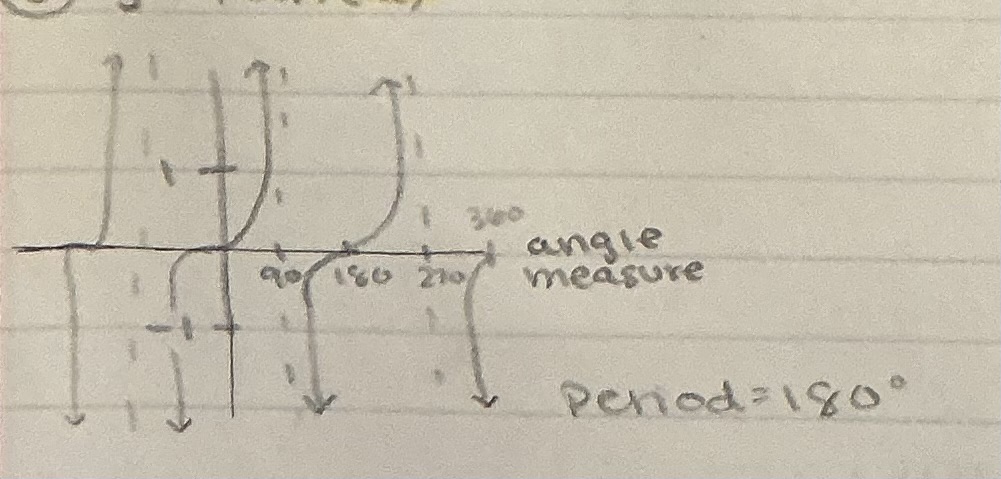 1
360
angle
90 180 270 measure
-1
Period=180°